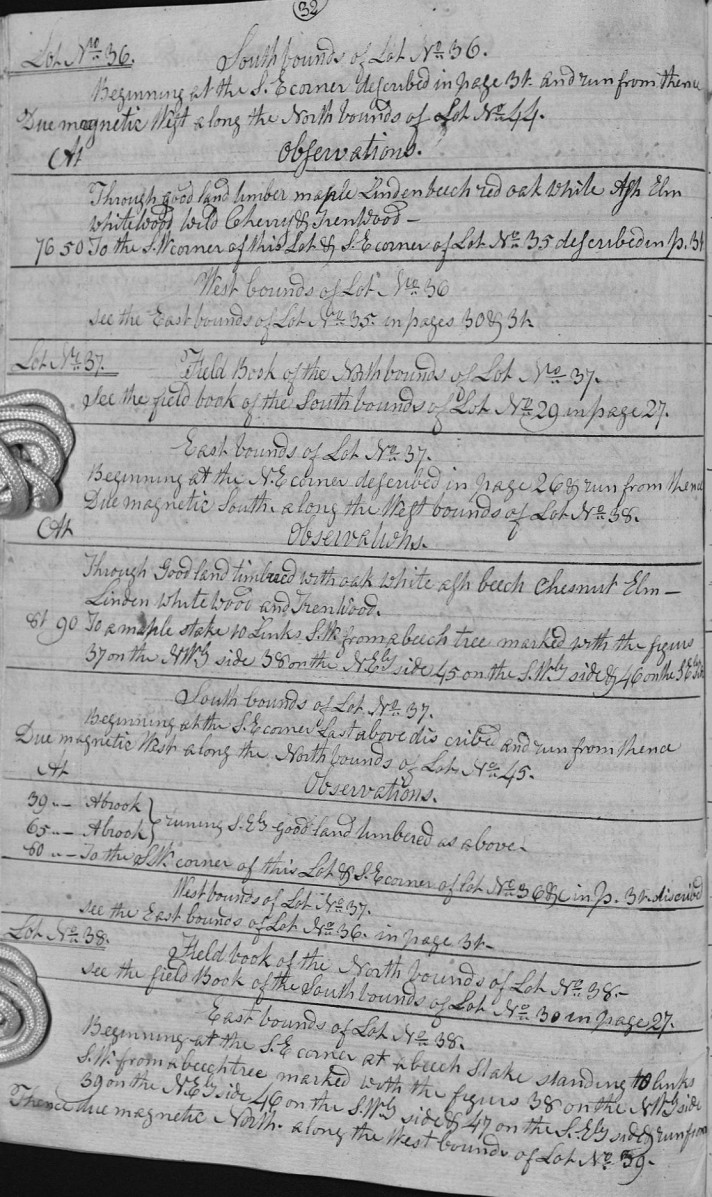 32
Lot No. 36. South bounds of Lot No. 36.
Beginning at the S. E corner described in page 31. and run from thence
Due magnetic West along the North bounds of Lot No. 44.
At Observations.
Through good land timber maple Linden beech red oak white Ash Elm
whitewood wild Cherry & Irenwood —
76 50 To the S.W corner of this Lot & S. E corner of Lot No. 35 described in p. 31
West bounds of Lot No. 36
see the East bounds of Lot No. 35. in pages 30 & 31.
Lot No. 37. Field Book of the North bounds of Lot No. 37.
See the field book of the South bounds of Lot No. 29 in page 27.
East bounds of Lot No. 37.
Beginning at the N. E corner described in page 26 & run from thence
Due magnetic South. along the West bounds of Lot No. 38.
At Observations.
Through Good land timbered with oak white ash beech Chesnut Elm —
Linden whitewood and Irenwood.
81 90 To a maple stake 10 Links S.W. from a beech tree marked with the figurs
37 on the N.W.ly side 38 on the N.E.ly side 45 on the S.W.ly side & 46 on the S.E.ly side
South bounds of Lot No. 37.
Beginning at the S. E corner Last above discribed and run from thence
Due magnetic West along the North bounds of Lot No. 45.
At Observations.
39 .. — A brook } runing S.E.ly good land timbered as above.
65 .. — A brook
80 .. — To the S.W. corner of this Lot & S. E corner of Lot No. 36 &c in p. 31. discribed
West bounds of Lot No. 37.
see the East bounds of Lot No. 36. in page 31 —
Lot No. 38. Field book of the North bounds of Lot No. 38 —
see the field Book of the South bounds of Lot No. 30 in page 27.
East bounds of Lot No. 38.
Beginning at the S. E corner at a beech Stake standing 10 links
S.W. from a beech tree marked with the figurs 38 on the N.W.ly side
39 on the N.E.ly side 46 on the S.W.ly side & 47 on the S.E.ly side & run from
Thence due magnetic North. along the West bounds of Lot No. 39.